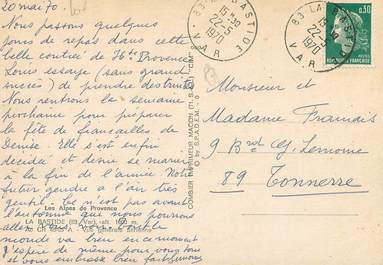 20 mai 70.
Nous passons quelques
jours de repos dans cette
belle contrée de Hte Provence
Louis essaye (sans grand
succès) de prendre des truites
Nous rentrons la semaine
prochaine pour préparer
la fête de fiançailles de
Denise. Elle s'est enfin
décidée et desire se marier
à la fin de l'année. Notre
futur gendre a l'air très
gentil. Ce n'est pas avant
l'automne que nous pourrons
aller
monde va bien en ce moment
J'espère de même pour vous tous
et vous embrasse bien
Les Alpes de Provence
LA BASTIDE (83.Var)
COMBIER IMPRIMEUR MACON
© by S.P.A.D.E.M.
83 LA BASTIDE
VAR
22-5
1970
83 LA
VAR
22-5
1970
0,50
REPUBLIQUE FRANÇAISE
Monsieur et
Madame
9 Bd Lemoine
89 Tonnerre